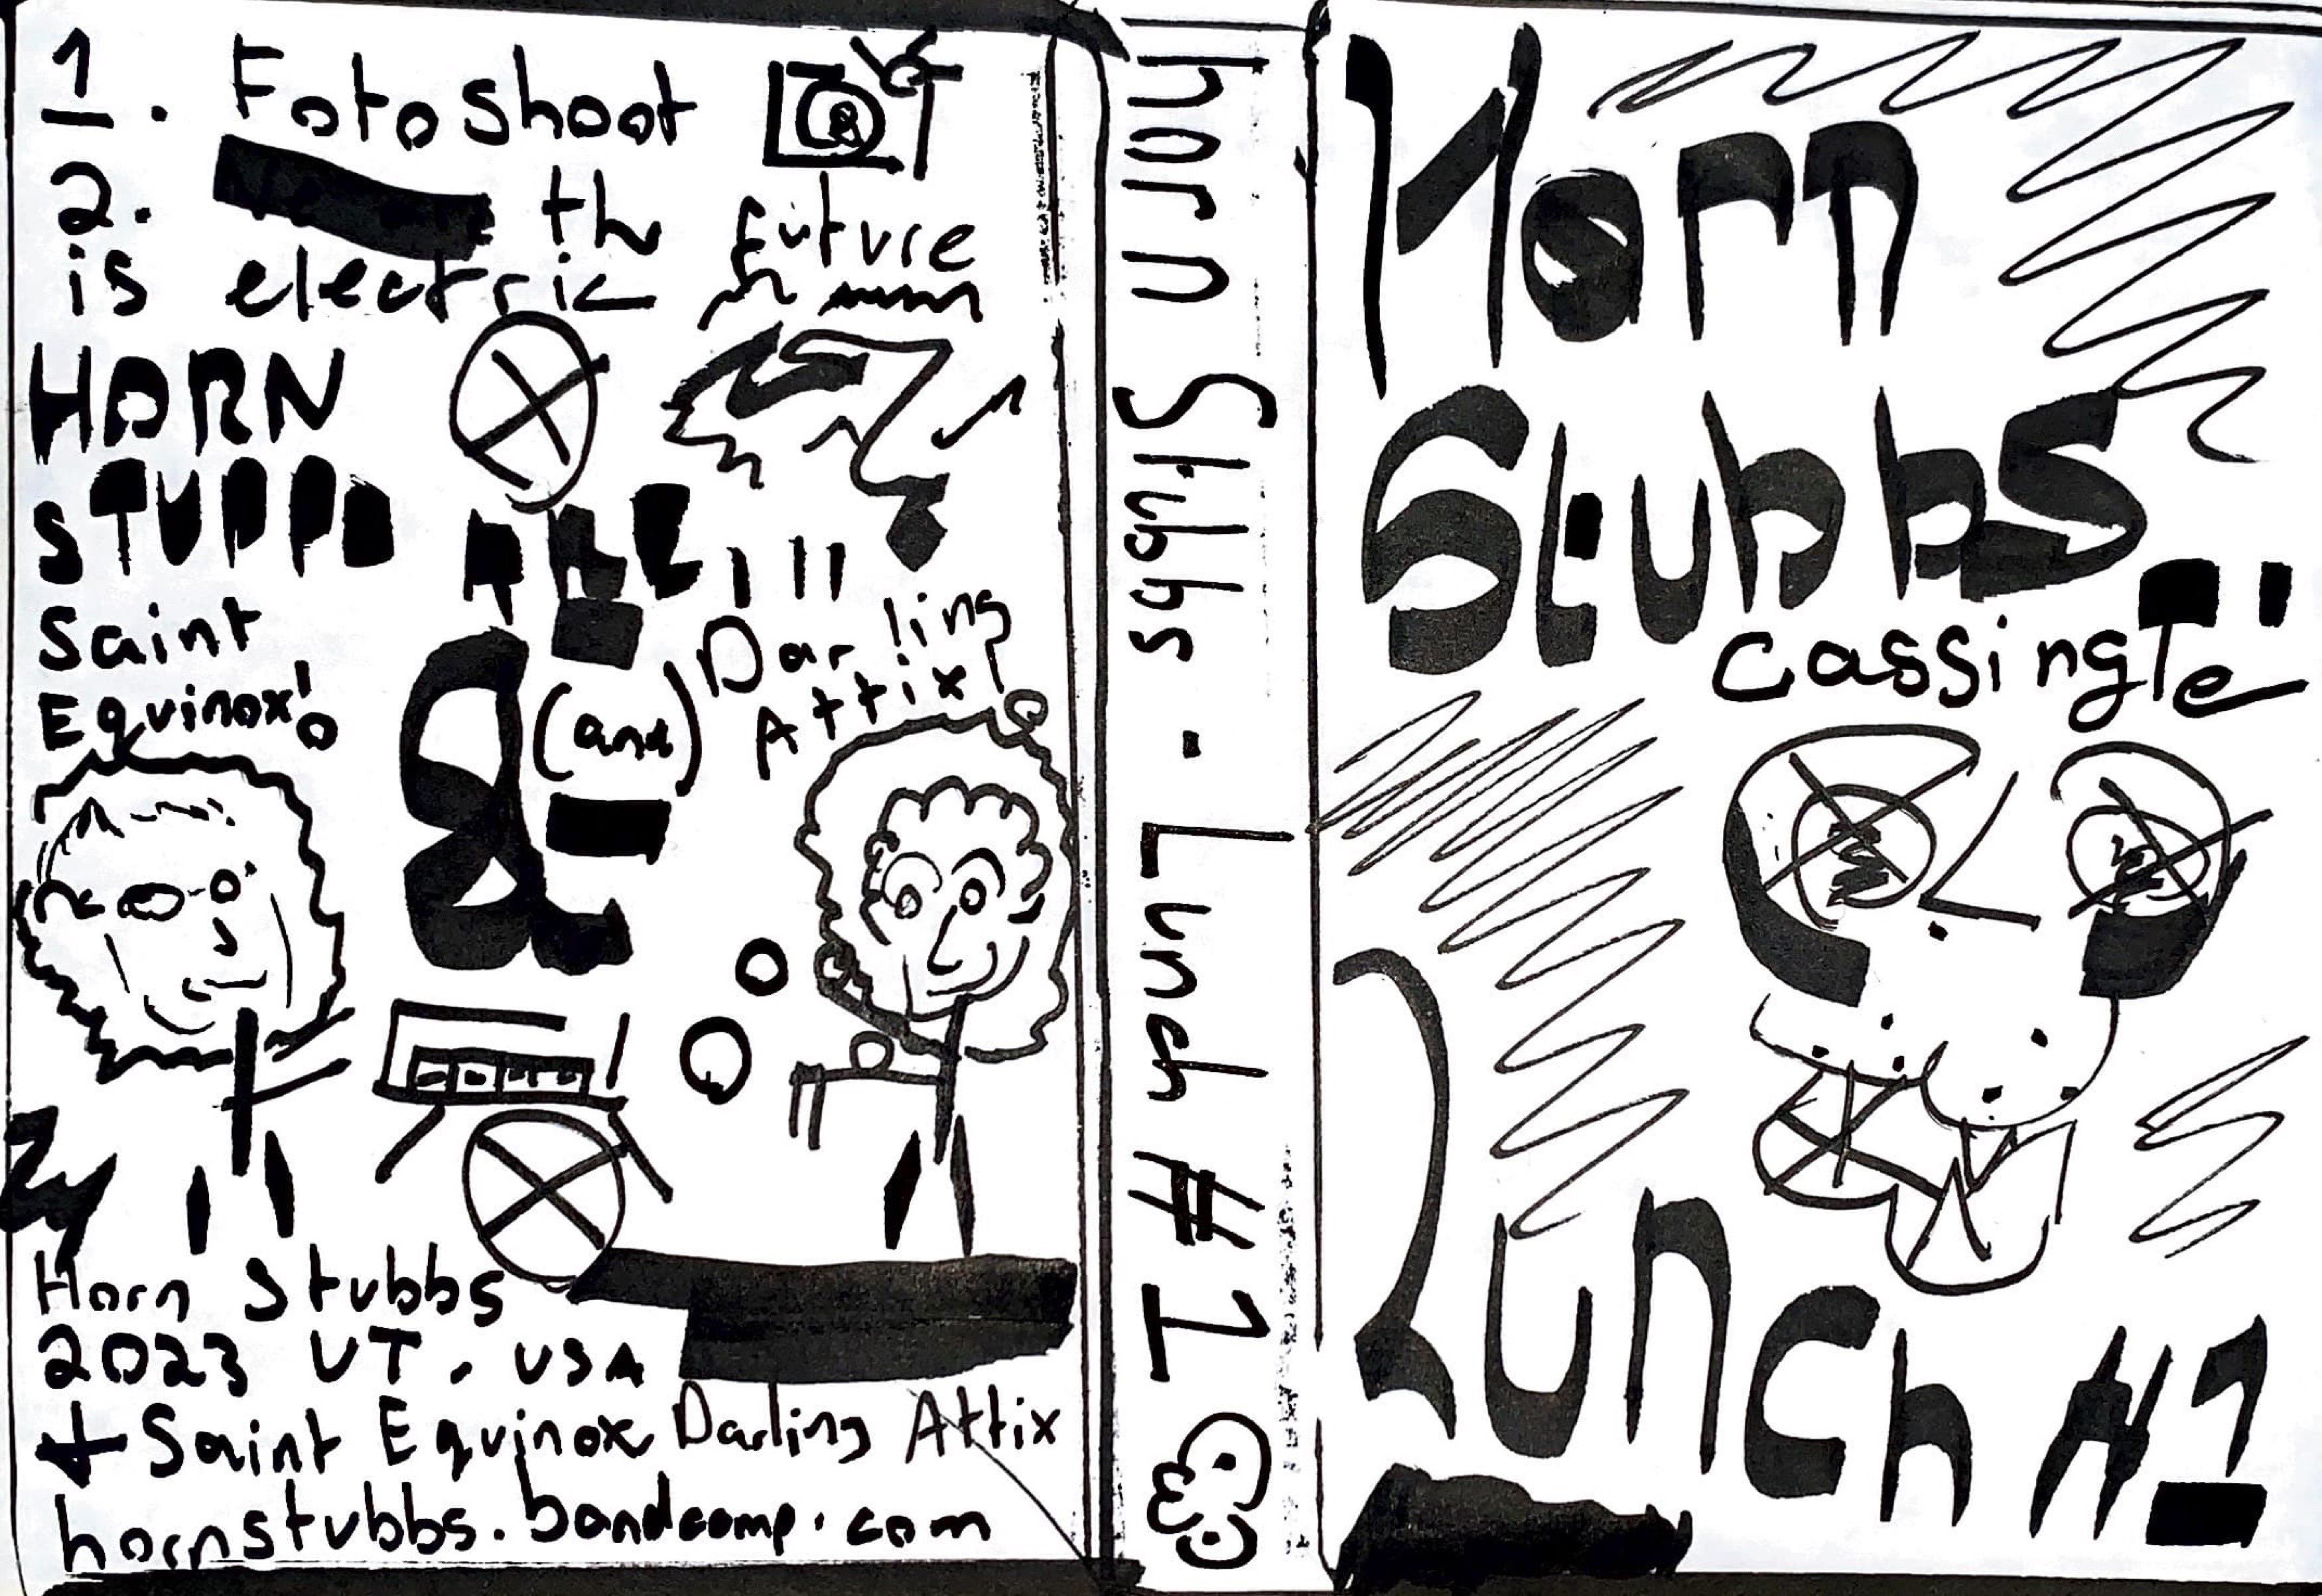 1. Fotoshoot
2. the future
is electric
HORN
STUBBS
ARE
Saint
Equinox!
(and) Darling
Attix
Horn Stubbs
2023 UT. USA
+ Saint Equinox Darling Attix
hornstubbs.bandcamp.com
horn Stubbs - Lunch #1
Horn
Stubbs
cassingle
Lunch #1